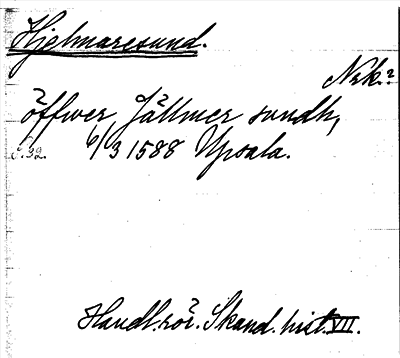 Hjelmaresund.
Nrk.?
öffwer Jällmer sundh,
S. 32. 6/3 1588 Upsala.
Handl. rör. Skand. hist. VII.